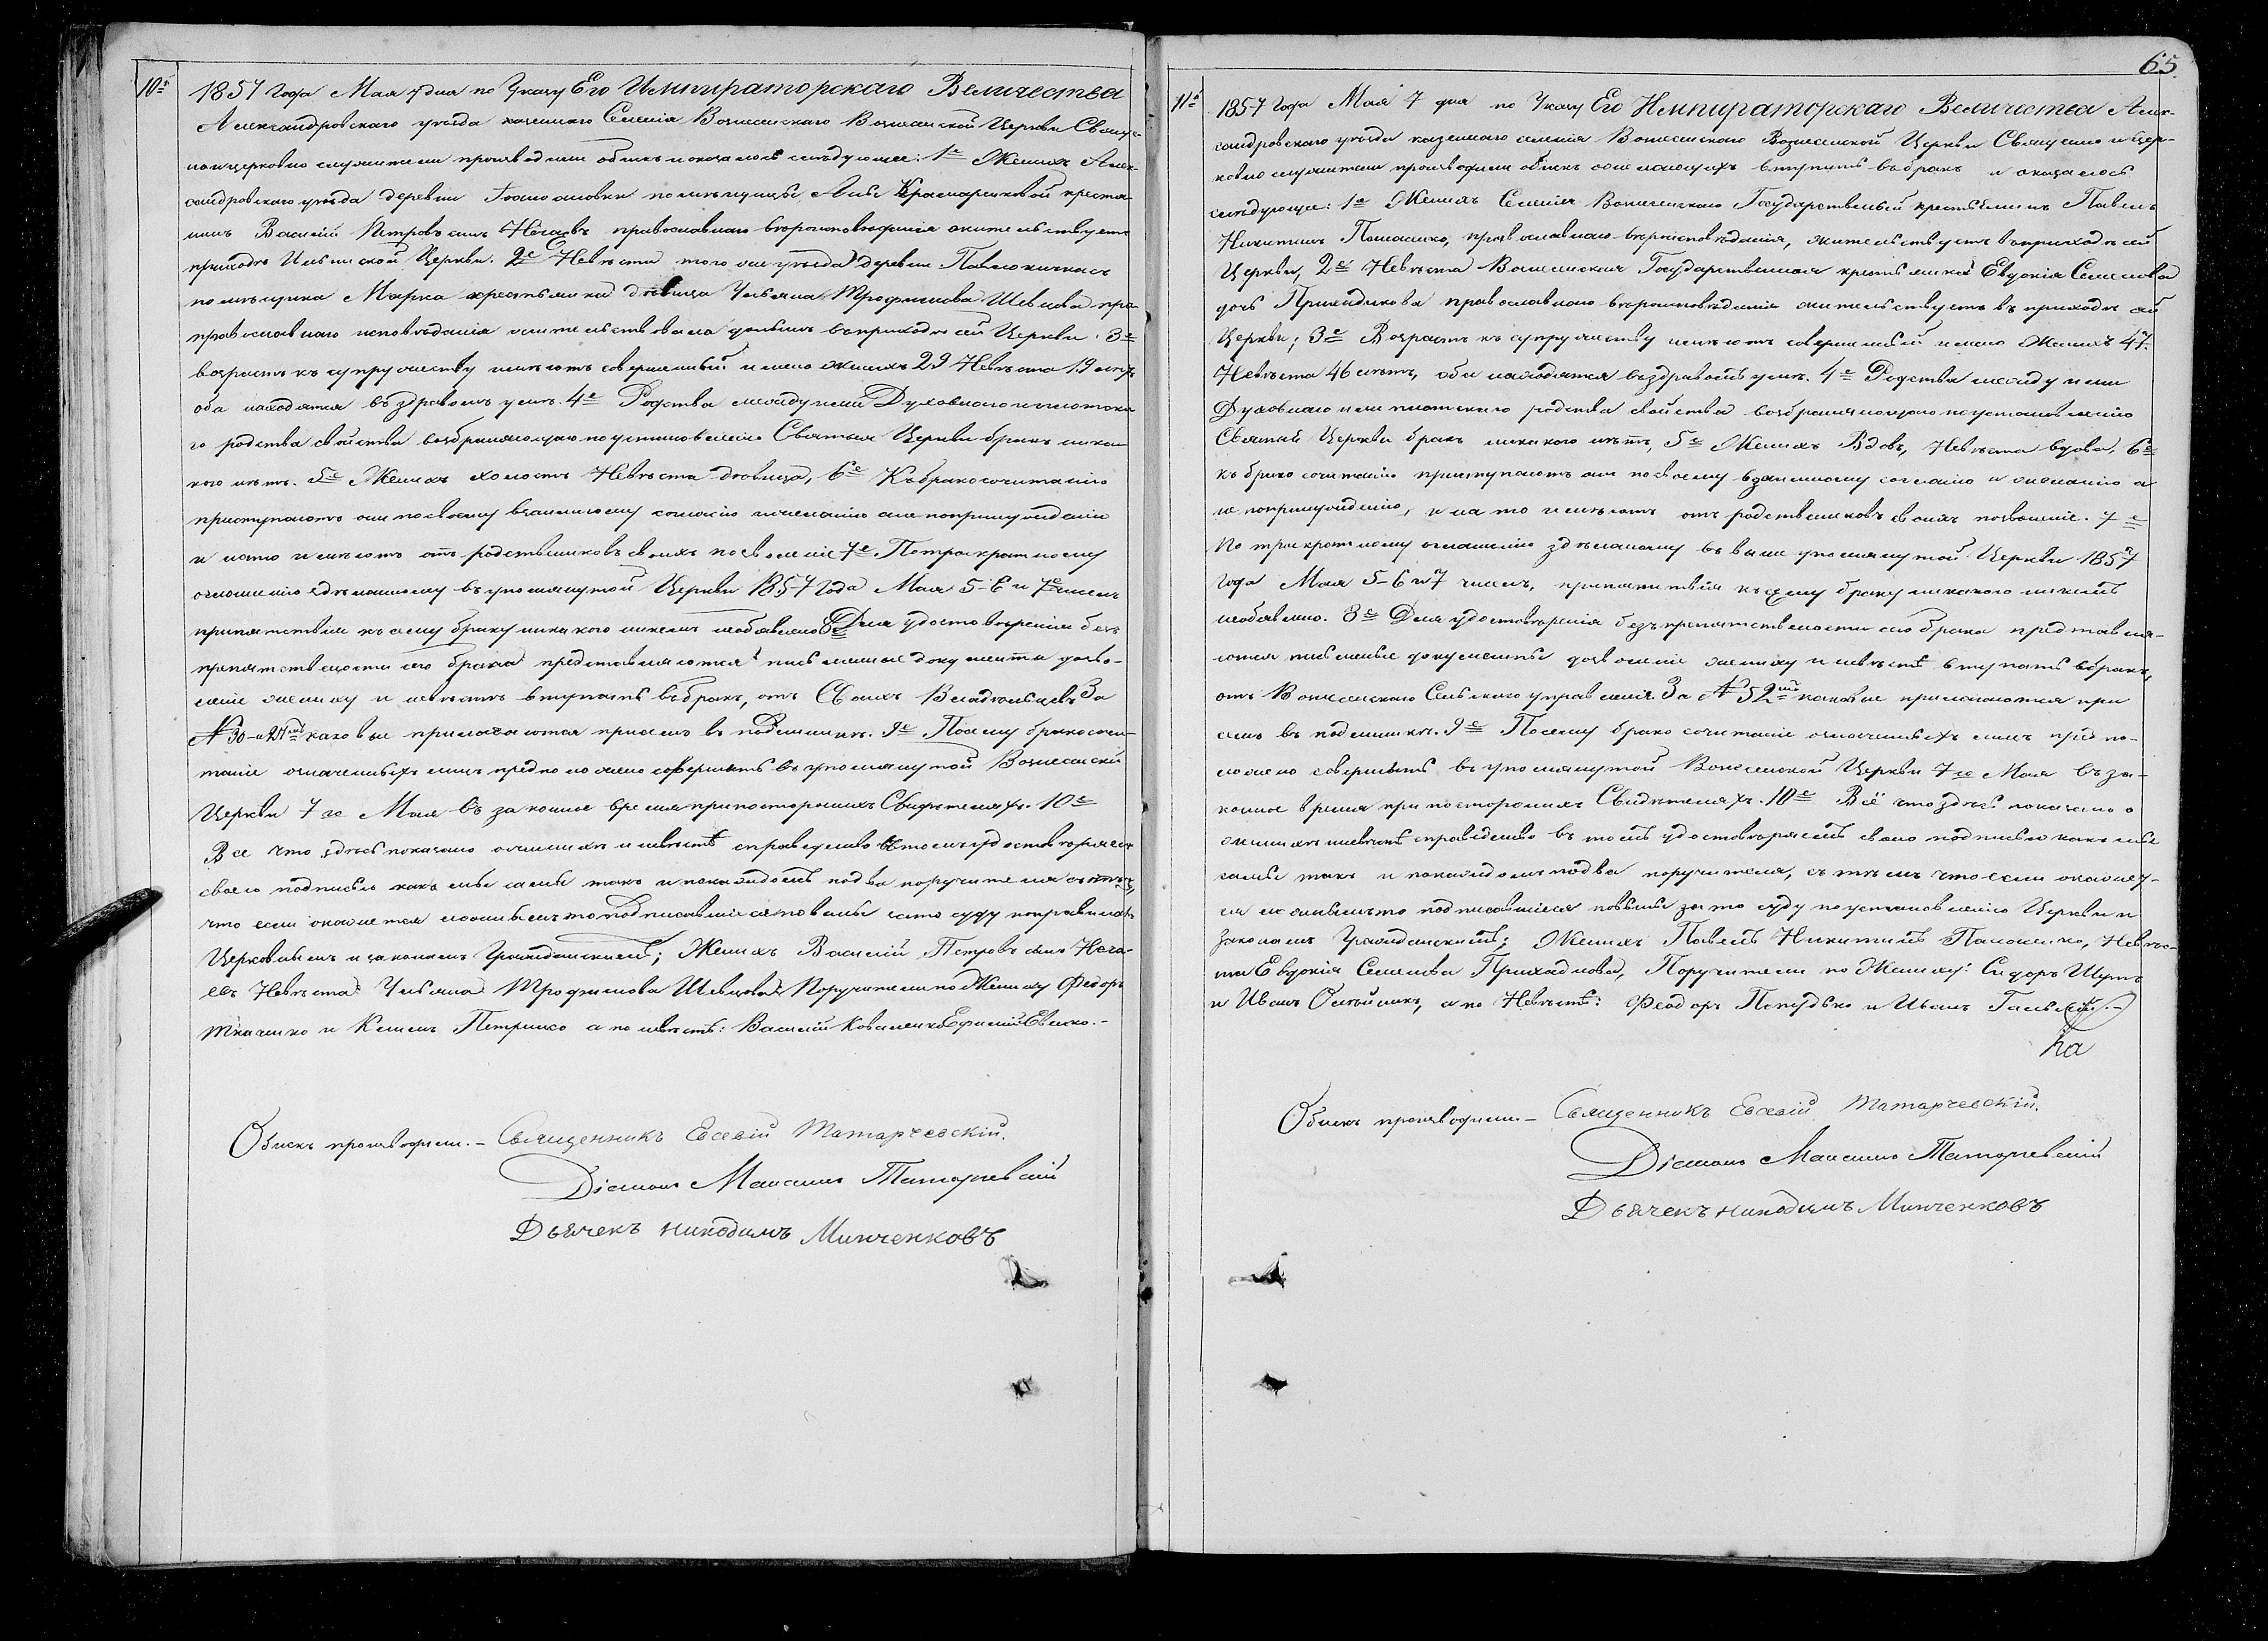 10е
1857 года Мая 7 дня по Указу Его Императорскаго Величества
Александровскаго уѣзда казеннаго Селенія Вознесенскаго Вознесенской Церкви Свяще-
ноицерковно служители производили обыскъ и оказалось слѣдующее: 1е Женихъ Алек-
сандровскаго уѣзда деревни помѣщицы Анны крестья-
нинъ Василій Петровъ сынъ Нечаевъ православнаго вѣроисповѣданія жительствуетъ
приходѣ Ильинской Церкви. 2е Невѣста того же уѣзда деревни
помѣщика Марка крестьянка дѣвица Ульяна Трофимова Шевцова пра-
православнаго исповѣданія жительствовала донынѣ въ приходѣ сей Церкви. 3е
возрастъ къ супружеству имѣютъ совершенный и мено женихъ 29 Невѣста 19 лѣтъ
оба находятся въ здравомъ умѣ. 4е Родства между ними Духовнаго и плотска
го родства свойства возбраняющаго по установленію Святыя Церкви бракъ ника
кого нѣтъ. 5е Женихъ холостъ Невѣста дѣвица, 6е Къ бракосочитанію
приступаютъ они по своему взаимному согласію и желанію а не по принужденію
и на то имѣютъ отъ родственниковъ своихъ позволеніе 7е По троекратному
оглашенію здѣланному въ упомянутой Церкви 1857 Года Мая 5-6 и 7е чиселъ
препятствія къ сему браку никакого никемъ необъявлено 8е Для удостовѣренія безъ
препятственности сего брака представляются письменные документы дозво-
леніе жениху и невѣстѣ вступать въ бракъ, отъ Своихъ Владельцевъ За
№ 30-и 21м каковые прилагаются при семъ въ подлинникѣ. 9е Посему бракосочи-
таніе означенныхъ лицъ предположено совершить въ упомянутой Вознесенской
Церкви 7го Мая въ законное время при постороннихъ Свидѣтеляхъ. 10е
Все что здѣсь показано о женихѣ и невѣстѣ справедливо въ томъ удостовѣряемъ
своею подписью какъ они сами такъ и по каждомъ по два поручителя съ тѣмъ,
что если окажется ложнымъ то подписавшіеся повинны за то суду по правиламъ
Церковнымъ и законамъ Гражданскимъ; Женихъ Василій Петровъ сынъ Неча-
евъ Невѣста Ульяна Трофимова Шевцова Поручители по Женихѣ Феодоръ
Ткаченко и Климъ Петренко а по невѣстѣ: Василій Коваленко Ефимій Евенко.-
Обыскъ производили. - Священникъ Евсевій Татарчевскій.
Діаконъ Татарчевскій
Дьячекъ никодимъ Минченковъ
65.
11е
1857 года Мая 7 дня по Указу Его Императорскаго Величества Алек-
сандровскаго уѣзда казеннаго селенія Вознесенскаго Вознесенской Церкви Священно и цер-
ковно служители производили обыскъ о желающихъ вступить въ бракъ и оказалось
слѣдующее: 1е Женихъ Селенія Вознесенскаго Государственный крестьянинъ Павелъ
Никитинъ православнаго вѣроисповѣданія, жительствуетъ въ приходѣ сей
Церкви, 2е Невѣста Вознесенская Государственная крестьянка Евдокія Семенова
дочь Приходькова православнаго вѣроисповѣданія жительствуетъ въ приходѣ сей
Церкви; 3е Возрастъ къ супружеству имѣютъ совершенный и мено Женихъ 47.
Невѣста 46 лѣтъ, оба находятся въ здравомъ умѣ. 4е Родства между ними
Духовнаго или плотскаго родства свойства возбраняющаго по установленію
Святой Церкви бракъ никакого нѣтъ, 5е Женихъ Вдовъ, Невѣста вдова, 6е
къ брако сочитанію приступаютъ они по своему взаимному согласію и желанію а
не попринужденію, и на то имѣютъ отъ родственниковъ своихъ позволеніе. 7е
По троекратному оглашенію здѣланному въ выше упомянутой Церкви 1857
года Мая 5-6 и 7 чиселъ, препятствія къ сему браку никакого никемъ
необъявлено. 8е Для удостовѣренія безъпрепятственности сего брака представля-
ются письменные документы дозволеніе жениху и невѣстѣ вступать въ бракъ,
отъ Вознесенскаго Сельскаго управленія. За № 52м каковые прилагаются при
семъ въ подлинникѣ. 9е Посему брако сочитаніе означенныхъ лицъ предпо-
ложено совершить въ упомянутой Вознесенской Церкви 7го Мая въ за-
конное время при постороннихъ Свидѣтеляхъ. 10е Всё что здѣсь показано о
женихѣ и невѣстѣ справедливо въ томъ удостовѣряемъ своею подписью какъ они
сами такъ и по каждомъ по два поручителя, съ тѣмъ что если окажет-
ся ложнымъ то подписавшіеся повинны за то суду по установленію Церкви и
законамъ Гражданскимъ; Женихъ Павелъ Никитинъ Невѣс-
та Евдокія Семенова Приходкова, Поручители по Женихѣ: Сидоръ
и Иванъ Олейникъ, а по Невѣстѣ: Феодоръ и Иванъ
Обыскъ производили - Священникъ Евсевій Татарчевскій.
Діаконъ Татарчевскій
Дьячекъ никодимъ Минченковъ